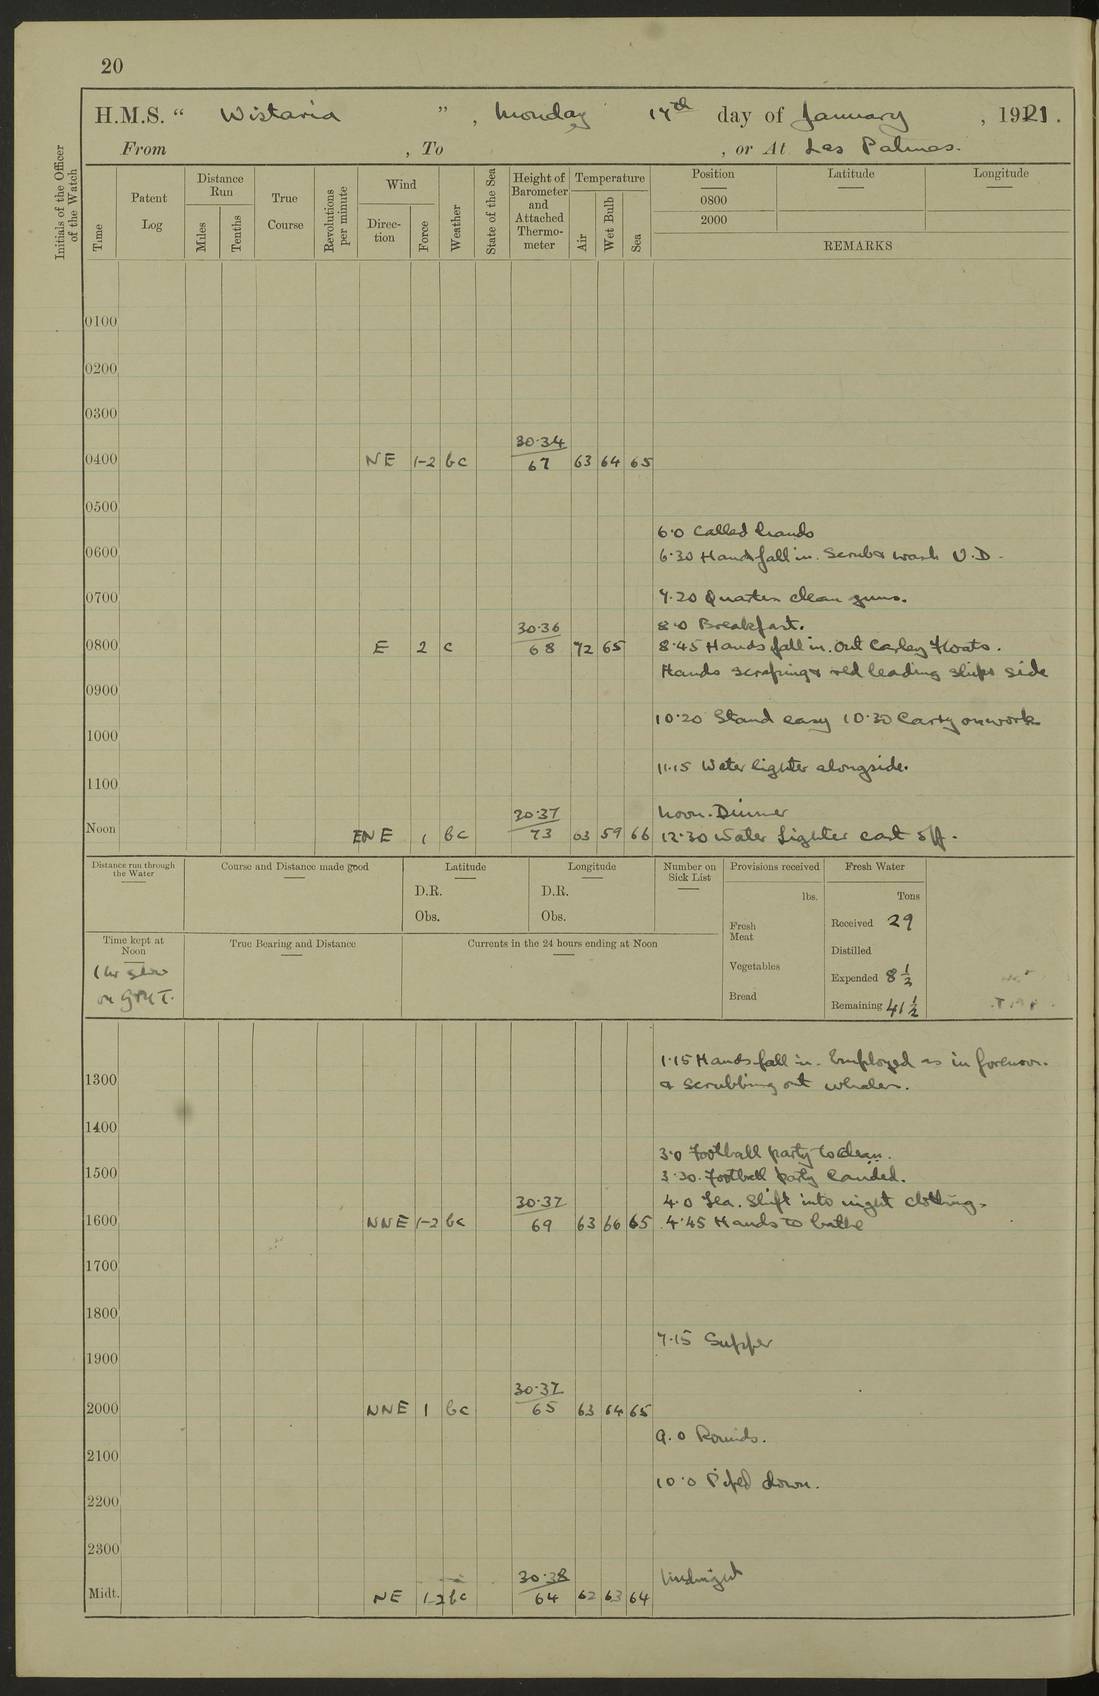 20
H.M.S. “ Wistaria ” , Monday 17th day of January , 1921.
From , To , or At Las Palmas.
Initials of the Officer of the Watch
Time
Patent Log
Distance Run
Miles
Tenths
True Course
Revolutions per minute
Wind
Direction
Force
Weather
State of the Sea
Height of Barometer and Attached Thermometer
Temperature
Air
Wet Bulb
Sea
Position Latitude Longitude
0800
2000
REMARKS
0100
0200
0300
30·34
0400 NE 1-2 bc 67 63 64 65
0500
6·0 Called hands
0600 6·30 Hands fall in. Scrub & wash U.D.
0700 7·20 Quarters clean guns.
30·36 8·0 Breakfast.
0800 E 2 c 68 72 65 8·45 Hands fall in. Out Carley Floats.
Hands scraping & red leading ships side
0900
10·20 Stand easy 10·30 Carry on work
1000
11·15 Water lighter alongside.
1100
30·37 Noon. Dinner
Noon ENE 1 bc 73 63 59 66 12·30 Water Lighter cast off.
Distance run through the Water
Course and Distance made good
Latitude
D.R.
Obs.
Longitude
D.R.
Obs.
Number on Sick List
Provisions received
lbs.
Fresh Meat
Vegetables
Bread
Fresh Water
Tons
Received 29
Distilled
Expended 8½
Remaining 41½
Time kept at Noon
1 hr slow
on GMT.
True Bearing and Distance
Currents in the 24 hours ending at Noon
1·15 Hands fall in. Employed as in forenoon.
1300 & scrubbing out whaler.
1400
3·0 Football party to clean.
1500 3·30. Football party landed.
30·32 4·0 Tea. Shift into night clothing.
1600 NNE 1-2 bc 69 63 66 65 4·45 Hands to bathe
1700
1800
7·15 Supper
1900
30·32
2000 NNE 1 bc 65 63 64 65
9·0 Rounds.
2100
10·0 Piped down.
2200
2300
30·38 Midnight
Midt. NE 1-2 bc 64 62 63 64